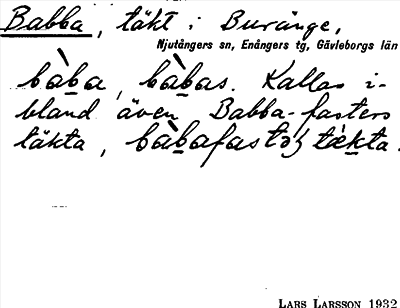 Babba, täkt i Buränge,
Njutångers sn, Enångers tg, Gävleborgs län
bàba, bàbas. Kallas i-
bland även Babba-fasters
täkta, bàbafastəʒ tæ̀kta.
LARS LARSSON 1932